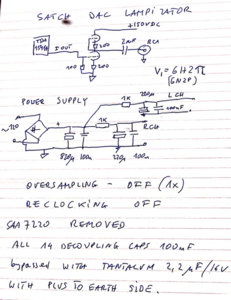 SATCH DAC LAMPIZATOR
+150VDC
TDA
1541A
I OUT
200
2mF
RCA
100
200
V₁ = 6H2П
(6N2P)
POWER SUPPLY
1K
L CH
220µ
100mF
~220
+
1K
RCH
820µ
100m
220µ
100m
OVERSAMPLING - OFF (1x)
RECLOCKING OFF
SAA7220 REMOVED
ALL 14 DECOUPLING CAPS 100mF
bypassed WITH TANTALUM 2,2µF/16V
WITH PLUS TO EARTH SIDE.